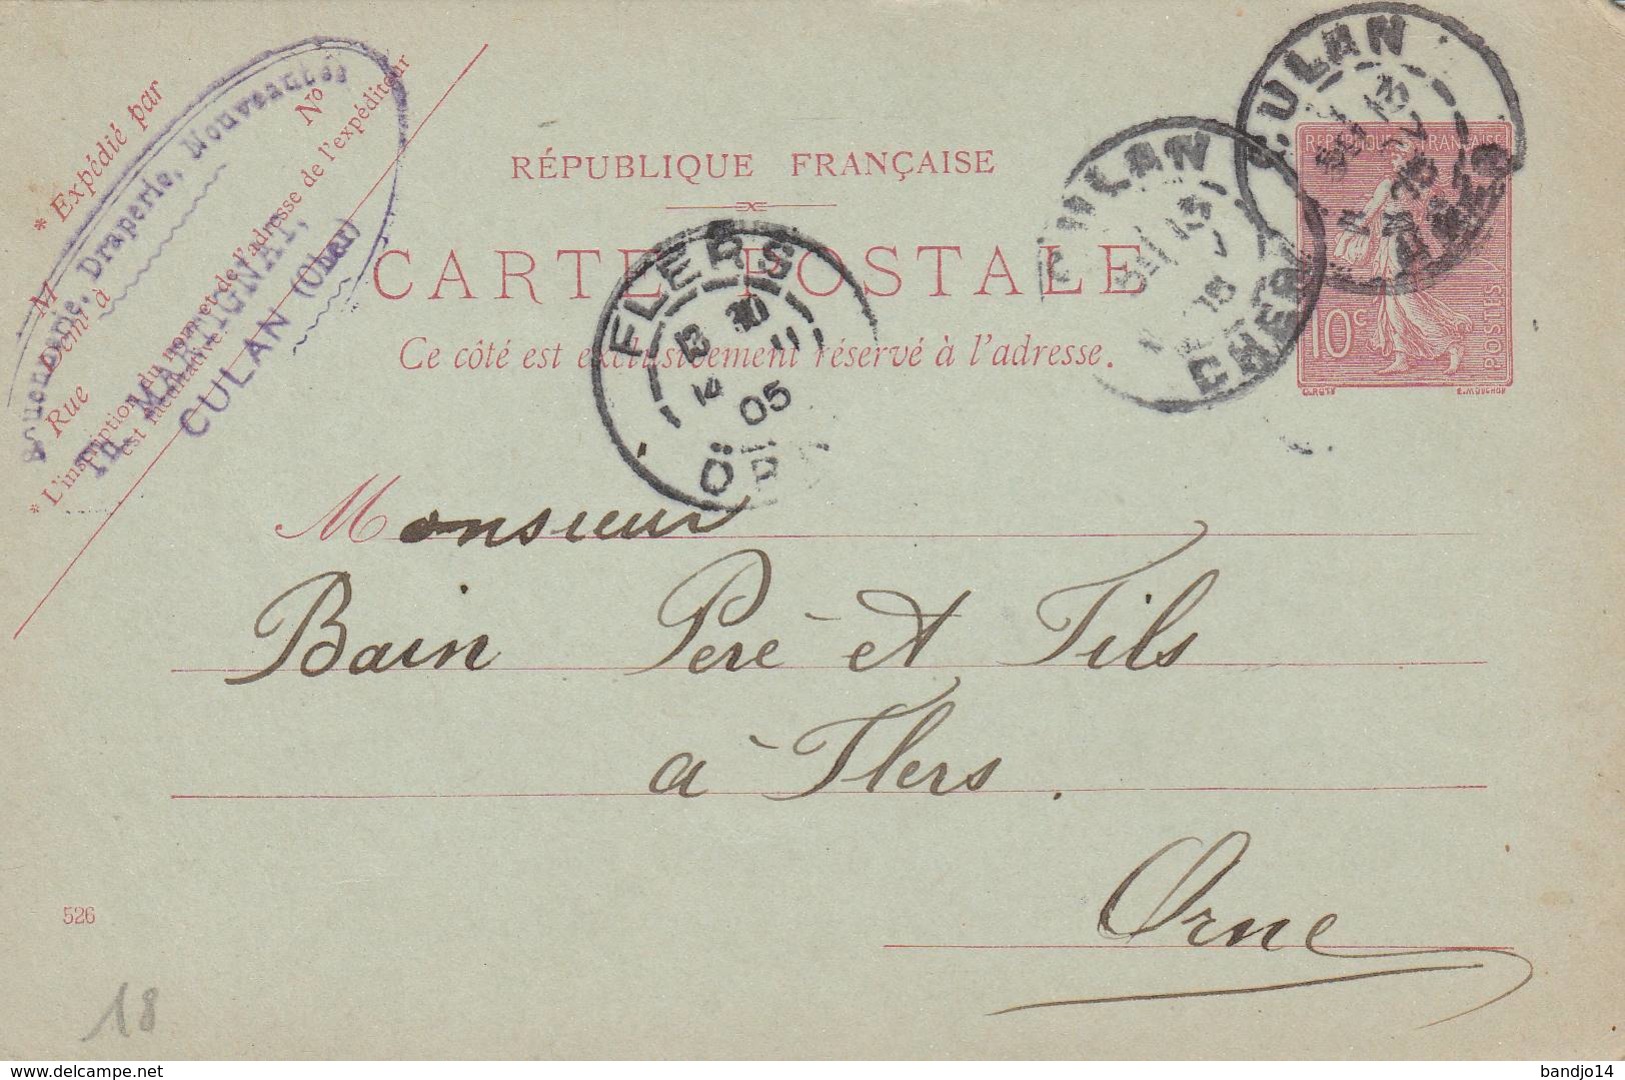 * Expédié par
M
Demt à
Rue
No
* L'inscription du nom et de l'adresse de l'expéditeur
est facultative.
Draperie, Nouveautés
Th. MARTIGNAT,
CULAN (Cher)
RÉPUBLIQUE FRANÇAISE
CARTE POSTALE
Ce côté est exclusivement réservé à l'adresse.
FLERS
05
CULAN
CHER
CULAN
CHER
REPUBLIQUE FRANÇAISE
POSTES
10c
O.ROTY
E.MOUCHON
Monsieur
Bain Père et Fils
à Flers.
Orne
526
18
delcampe.net
bandjo14